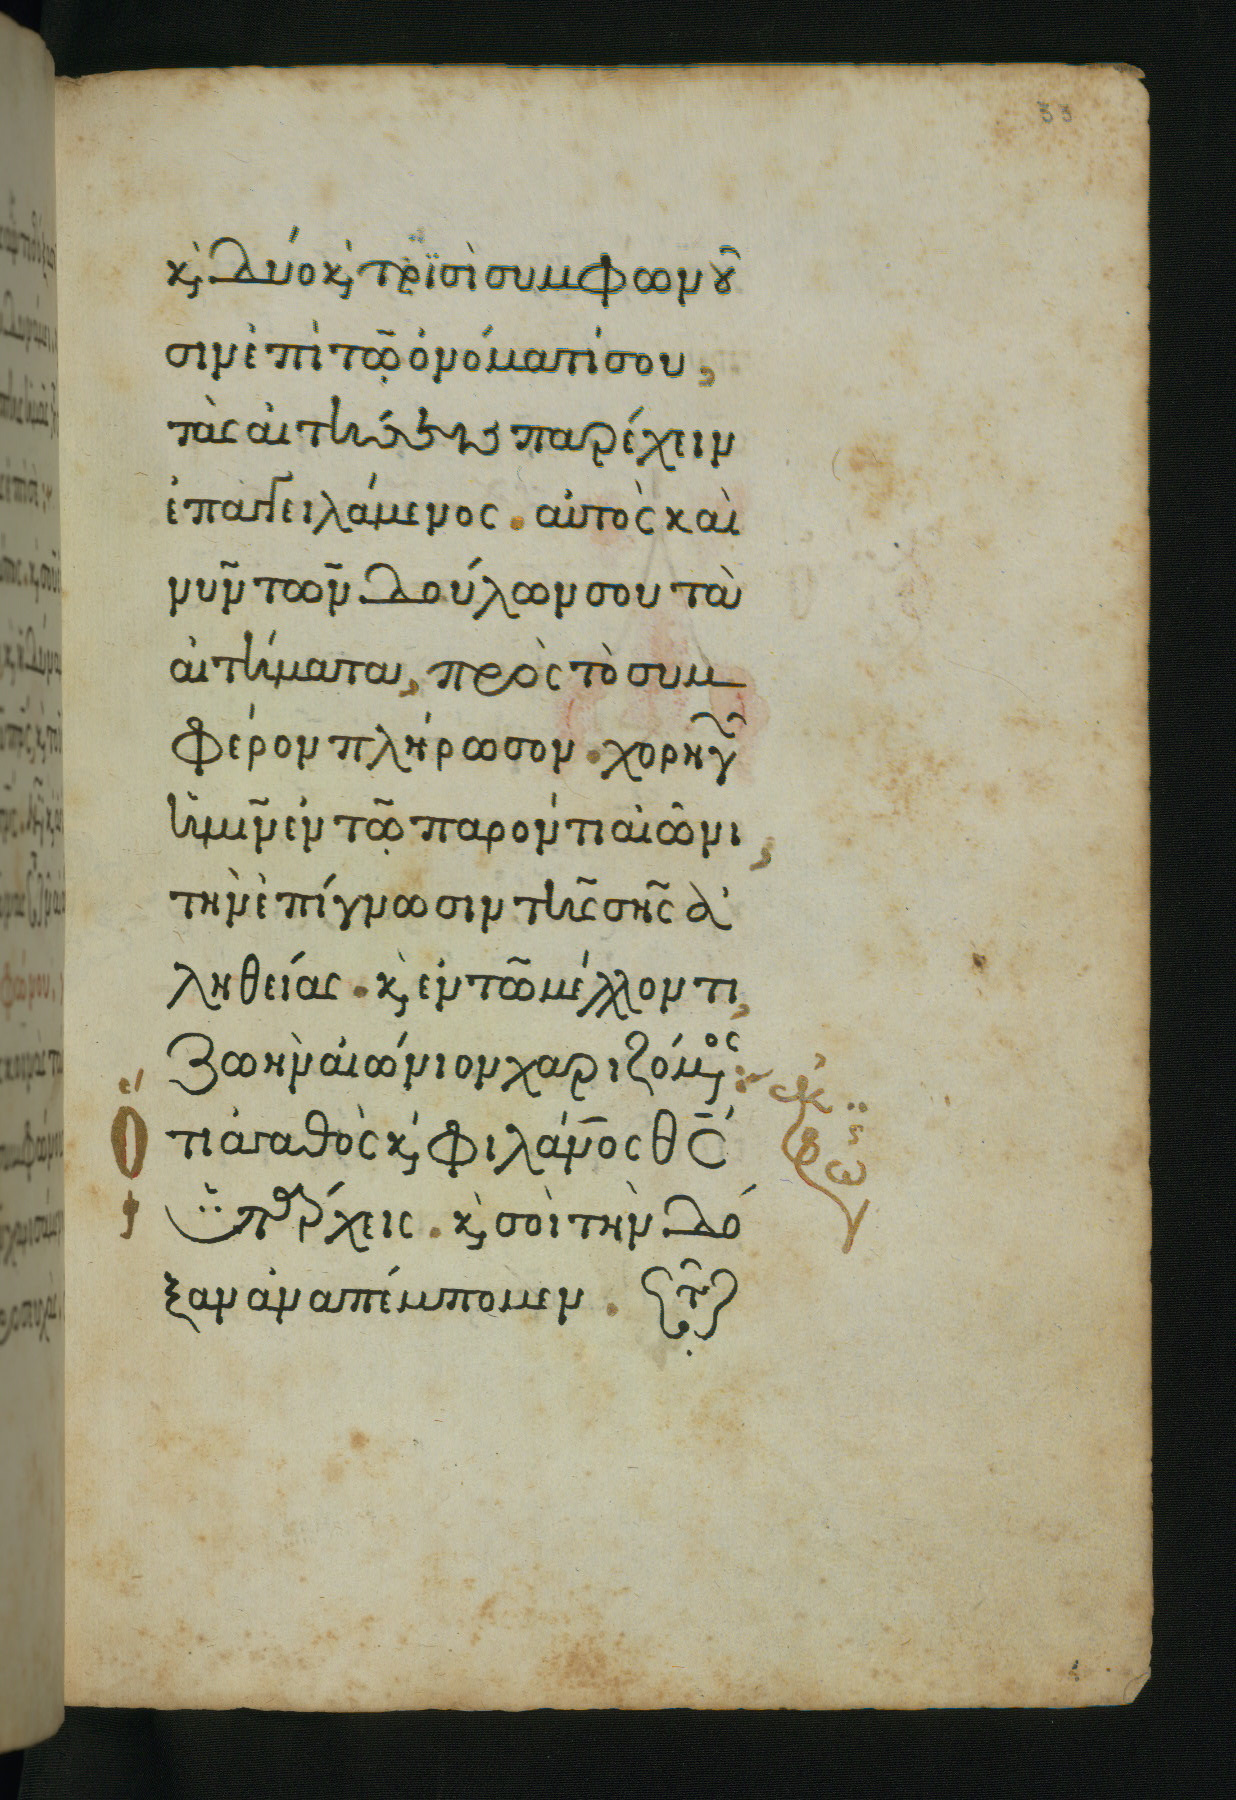 33
κ, δύο κ, τρϊσὶ συμφωνοῦ
σιν ἐπὶ τῶ ὀνόματί σου,
τὰς αἰτήσεις παρέχειν
ἐπαγγειλάμενος . αὐτὸς καὶ
νῦν τῶν δούλων σου τὰ
αἰτήματα, πρὸς τὸ συμ
φέρον πλήρωσον . χορηγῶν
ἡμῖν ἐν τῶ παρόντι αἰῶνι,
τὴν ἐπίγνωσιν τῆς σῆς ἀ
ληθείας . κ, ἐν τῶ μέλλοντι,
ζωὴν αἰώνιον χαριζόμενος : ἐκ
Ὅτι ἀγαθὸς κ, φιλάνος θς
ϋπάρχεις . κ, σοὶ τὴν δό
ξαν ἀναπέμπομεν . τῶ